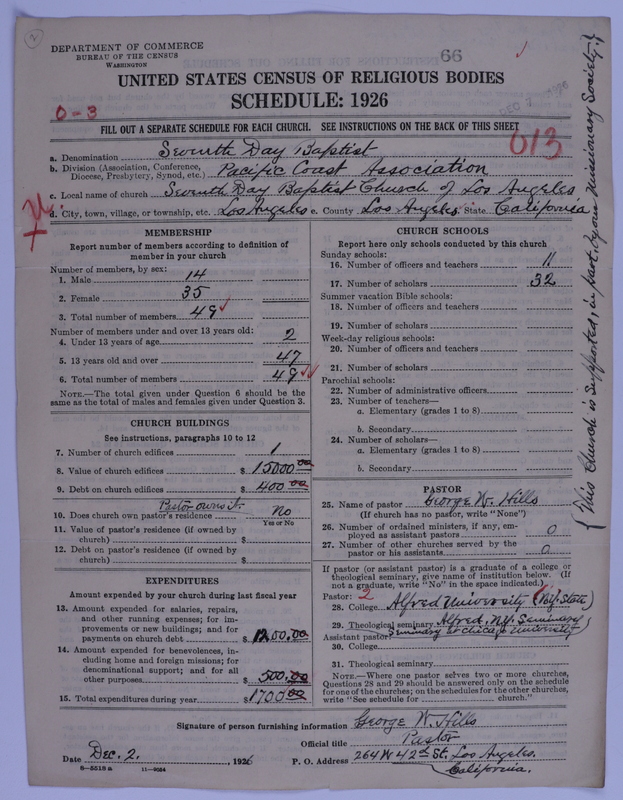 2
DEPARTMENT OF COMMERCE
BUREAU OF THE CENSUS
WASHINGTON
66
UNITED STATES CENSUS OF RELIGIOUS BODIES
SCHEDULE: 1926
0-3
613
FILL OUT A SEPARATE SCHEDULE FOR EACH CHURCH. SEE INSTRUCTIONS ON THE BACK OF THIS SHEET
a. Denomination Seventh Day Baptist
b. Division (Association, Conference, Diocese, Presbytery, Synod, etc.) Pacific Coast Association
c. Local name of church Seventh Day Baptist Church of Los Angeles
d. City, town, village, or township, etc. Los Angeles e. County Los Angeles State California
MEMBERSHIP
Report number of members according to definition of
member in your church
Number of members, by sex:
1. Male 14
2. Female 35
3. Total number of members 49
Number of members under and over 13 years old:
4. Under 13 years of age 2
5. 13 years old and over 47
6. Total number of members 49
NOTE.—The total given under Question 6 should be
the same as the total of males and females given under Question 3.
CHURCH BUILDINGS
See instructions, paragraphs 10 to 12
7. Number of church edifices 1
8. Value of church edifices $ 15000.00
9. Debt on church edifices $ 400.00
Pastor owns it.
10. Does church own pastor's residence No
Yes or No
11. Value of pastor's residence (if owned by
church) $
12. Debt on pastor's residence (if owned by
church) $
EXPENDITURES
Amount expended by your church during last fiscal year
13. Amount expended for salaries, repairs,
and other running expenses; for im-
provements or new buildings; and for
payments on church debt $ 1200.00
14. Amount expended for benevolences, in-
cluding home and foreign missions; for
denominational support; and for all
other purposes $ 500.00
15. Total expenditures during year $ 1700.00
CHURCH SCHOOLS
Report here only schools conducted by this church
Sunday schools:
16. Number of officers and teachers 11
17. Number of scholars 32
Summer vacation Bible schools:
18. Number of officers and teachers
19. Number of scholars
Week-day religious schools:
20. Number of officers and teachers
21. Number of scholars
Parochial schools:
22. Number of administrative officers
23. Number of teachers—
a. Elementary (grades 1 to 8)
b. Secondary
24. Number of scholars—
a. Elementary (grades 1 to 8)
b. Secondary
PASTOR
25. Name of pastor George W. Hills
(If church has no pastor, write "None")
26. Number of ordained ministers, if any, em-
ployed as assistant pastors 0
27. Number of other churches served by the
pastor or his assistants 0
If pastor (or assistant pastor) is a graduate of a college or
theological seminary, give name of institution below. (If
not a graduate, write "No" in the space indicated.)
Pastor: 2
28. College Alfred University (N.Y. State)
29. Theological seminary Alfred, N.Y. Seminary
Assistant pastor: Seminary at Chicago University
30. College
31. Theological seminary
NOTE.—Where one pastor serves two or more churches,
Questions 28 and 29 should be answered only on the schedule
for one of the churches; on the schedules for the other churches,
write "See schedule for church."
{This Church is supported, in part, by our Missionary Society.}
Signature of person furnishing information George W. Hills
Official title Pastor
Date Dec. 2. 1926 P. O. Address 264 W 42nd St. Los Angeles.
California.
8—5518 a 11—9564